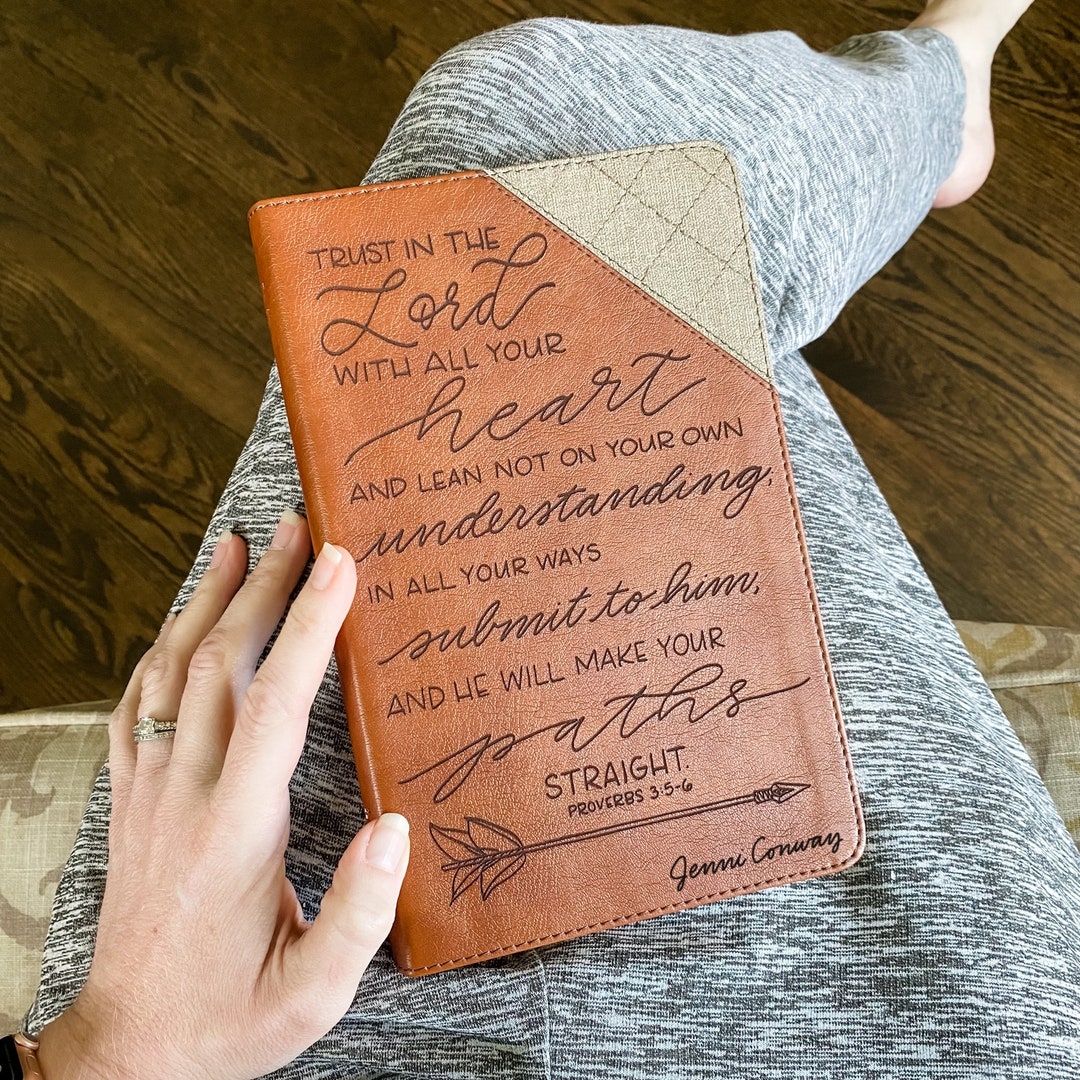 TRUST IN THE
Lord
WITH ALL YOUR
heart
AND LEAN NOT ON YOUR OWN
understanding;
IN ALL YOUR WAYS
submit to him,
AND HE WILL MAKE YOUR
paths
STRAIGHT.
PROVERBS 3:5-6
Jenni Conway